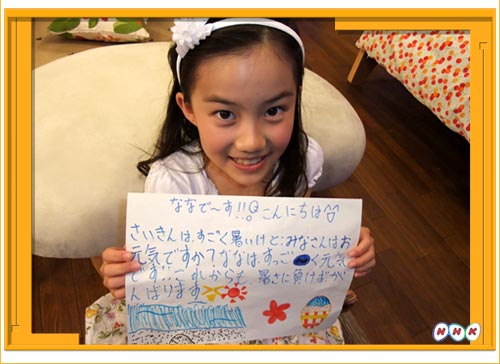 ななで〜す!!こんにちは
さいきんは、すごく暑いけど、みなさんはお
元気ですか?ななは、すっごーく元気
です!!これからも、暑さに負けずが
んばります
NHK